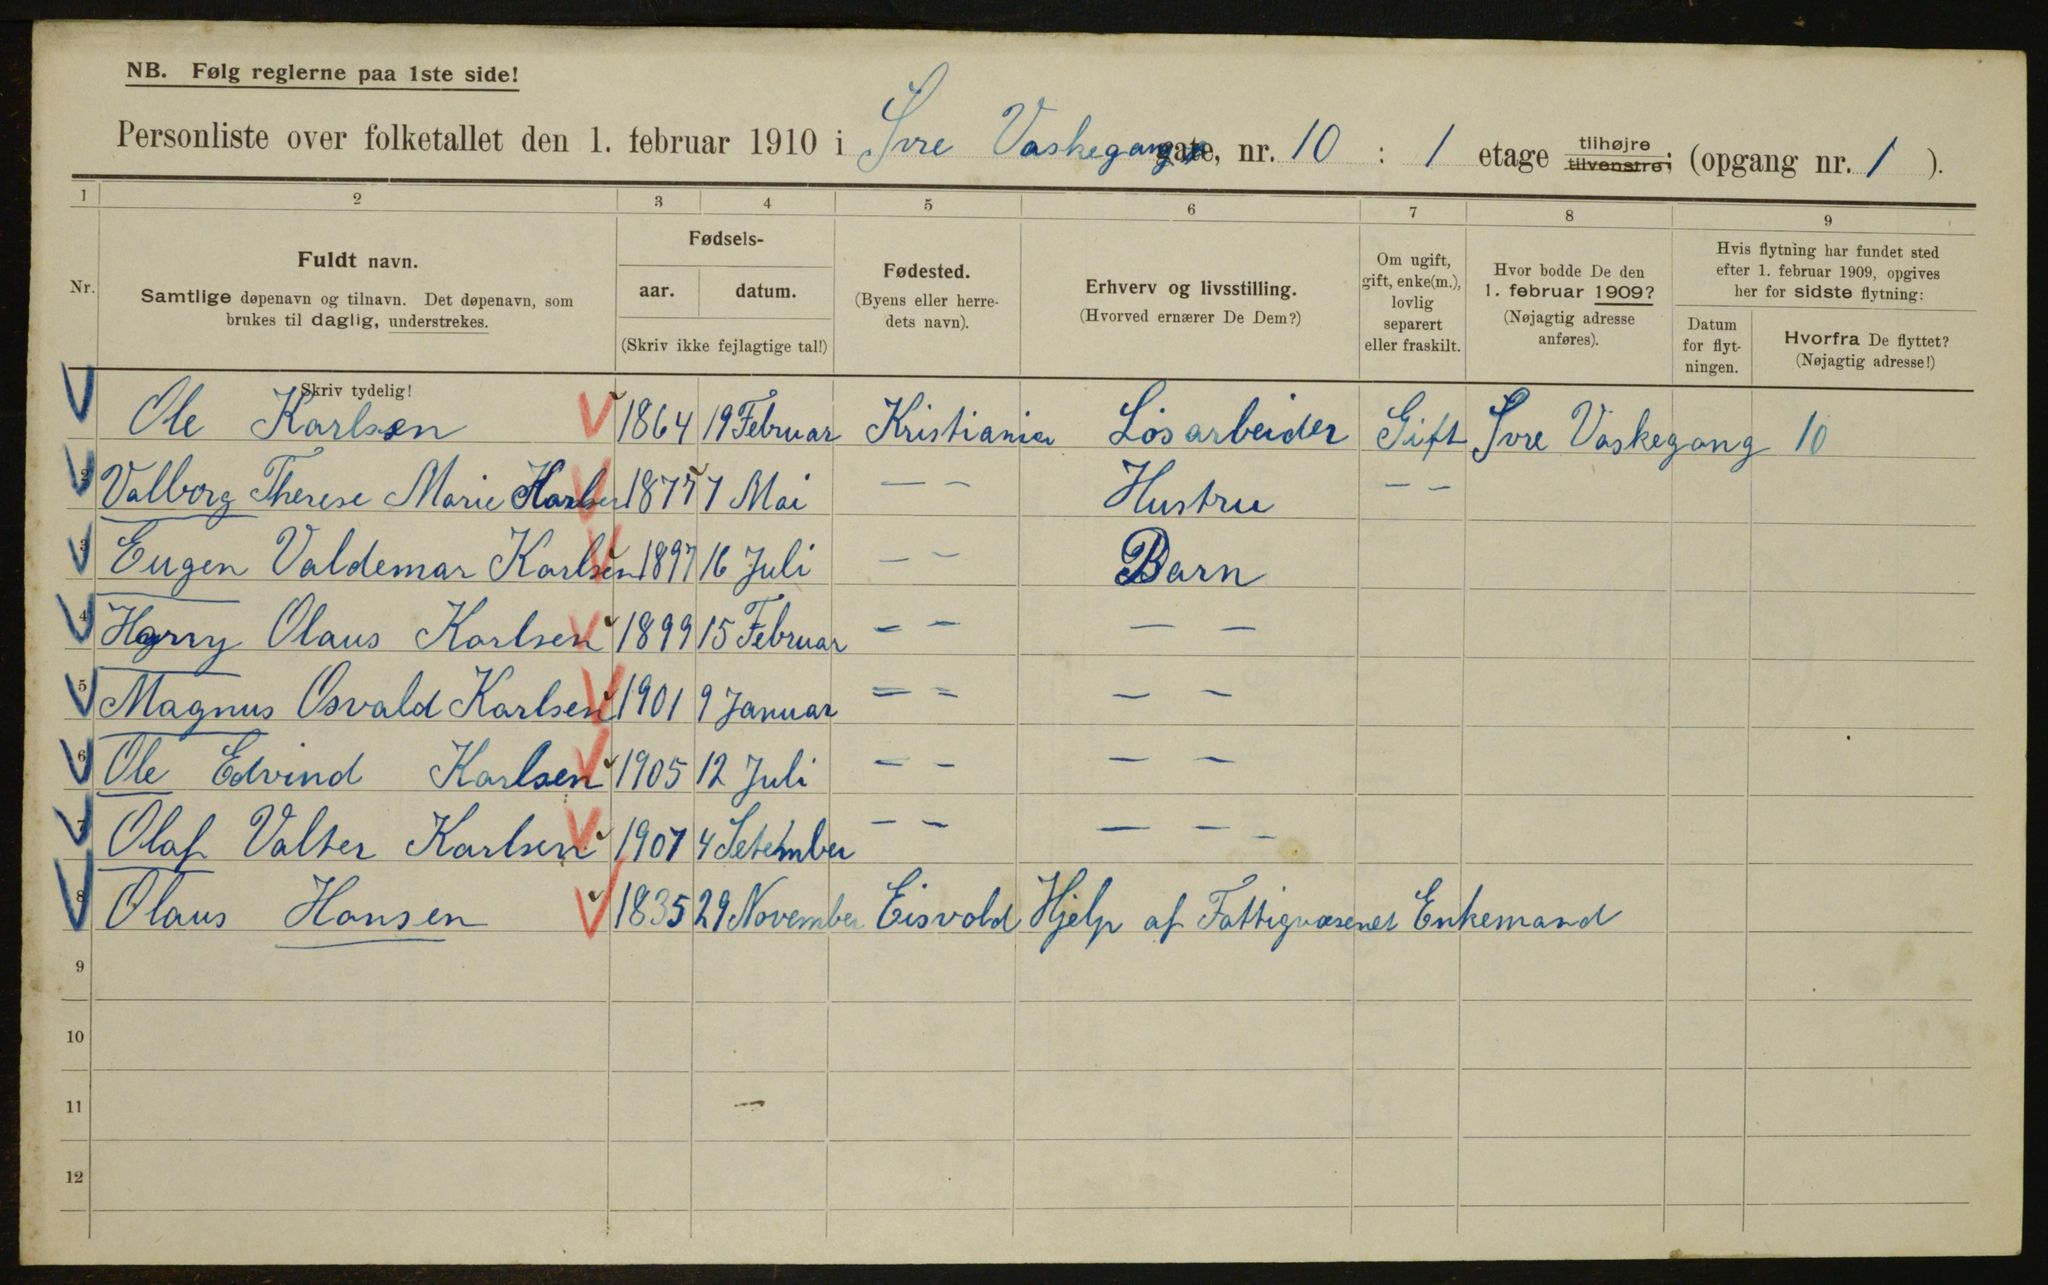 NB. Følg reglerne paa 1ste side!
Personliste over folketallet den 1. februar 1910 i Svre Vaskegang gate, nr. 10 : 1 etage tilhøjre tilvenstre; (opgang nr. 1 ).
1 2 3 4 5 6 7 8 9
Nr.
Fuldt navn.
Samtlige døpenavn og tilnavn. Det døpenavn, som
brukes til daglig, understrekes.
Skriv tydelig!
Fødsels-
aar. datum.
(Skriv ikke fejlagtige tal!)
Fødested.
(Byens eller herre-
dets navn).
Erhverv og livsstilling.
(Hvorved ernærer De Dem?)
Om ugift,
gift, enke(m.),
lovlig
separert
eller fraskilt.
Hvor bodde De den
1. februar 1909?
(Nøjagtig adresse
anføres).
Hvis flytning har fundet sted
efter 1. februar 1909, opgives
her for sidste flytning:
Datum
for flyt-
ningen.
Hvorfra De flyttet?
(Nøjagtig adresse!)
Ole Karlsen 1864 19 Februar Kristiania Løsarbeider Gift Svre Vaskegang 10
2 Valborg Therese Marie Karlsen 1877 7 Mai — — Hustru — —
3 Eugen Valdemar Karlsen 1897 16 Juli — — Barn
4 Harry Olaus Karlsen 1899 15 Februar — — — —
5 Magnus Osvald Karlsen 1901 9 Januar — — — —
6 Ole Edvind Karlsen 1905 12 Juli — — — —
7 Olaf Valter Karlsen 1907 4 Setember — — — —
8 Olaus Hansen 1835 29 November Eisvold Hjelp af Fattigvæsenet Enkemand
9
10
11
12